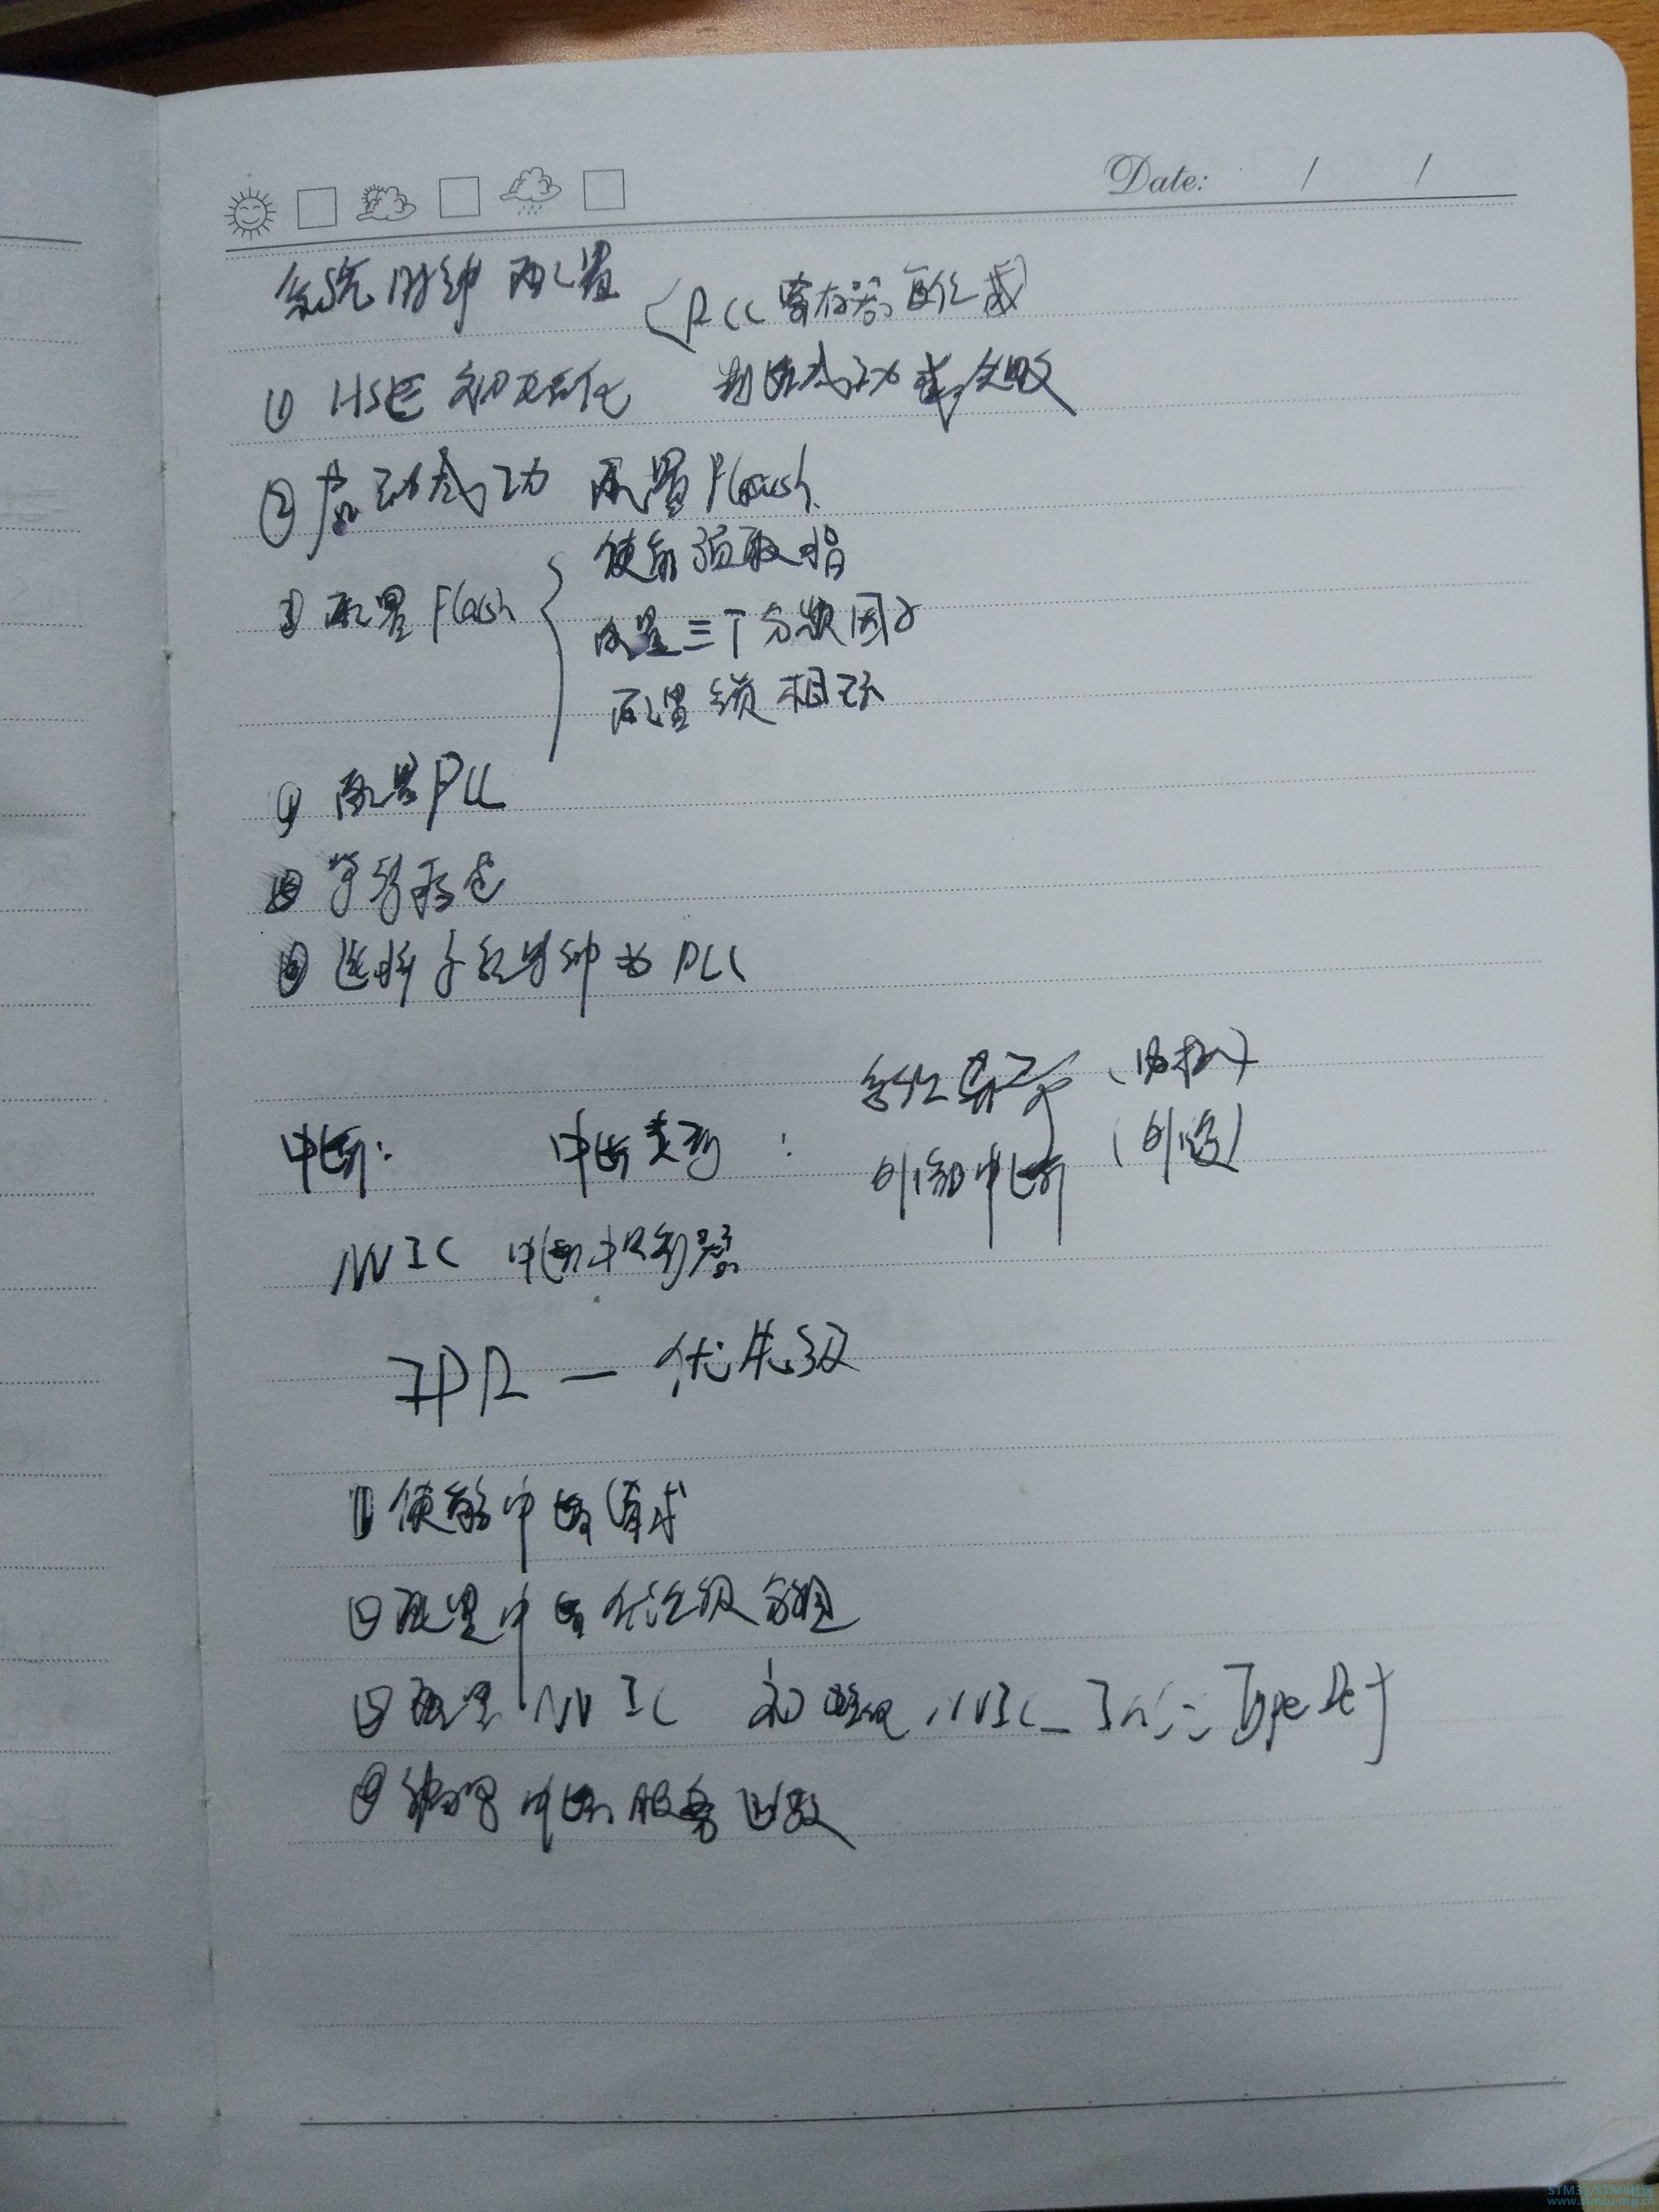 Date: / /
系统时钟配置
(RCC寄存器复位成
① HSE 初始化 判断成功或失败
② 启动成功 配置Flash
③ 配置Flash
使能预取指
配置三个分频因子
配置锁相环
④ 配置PLL
⑤ 等待稳定
⑥ 选择系统时钟为PLL
中断: 中断类型 :
系统异常 (内核)
外部中断 (外设)
NVIC 中断控制器
IPR — 优先级
① 使能中断请求
② 配置中断优先级分组
③ 配置NVIC 初始化NVIC_InitTypeDef
④ 编写中断服务函数
STM32/STM8社区
www.stmcu.org.cn